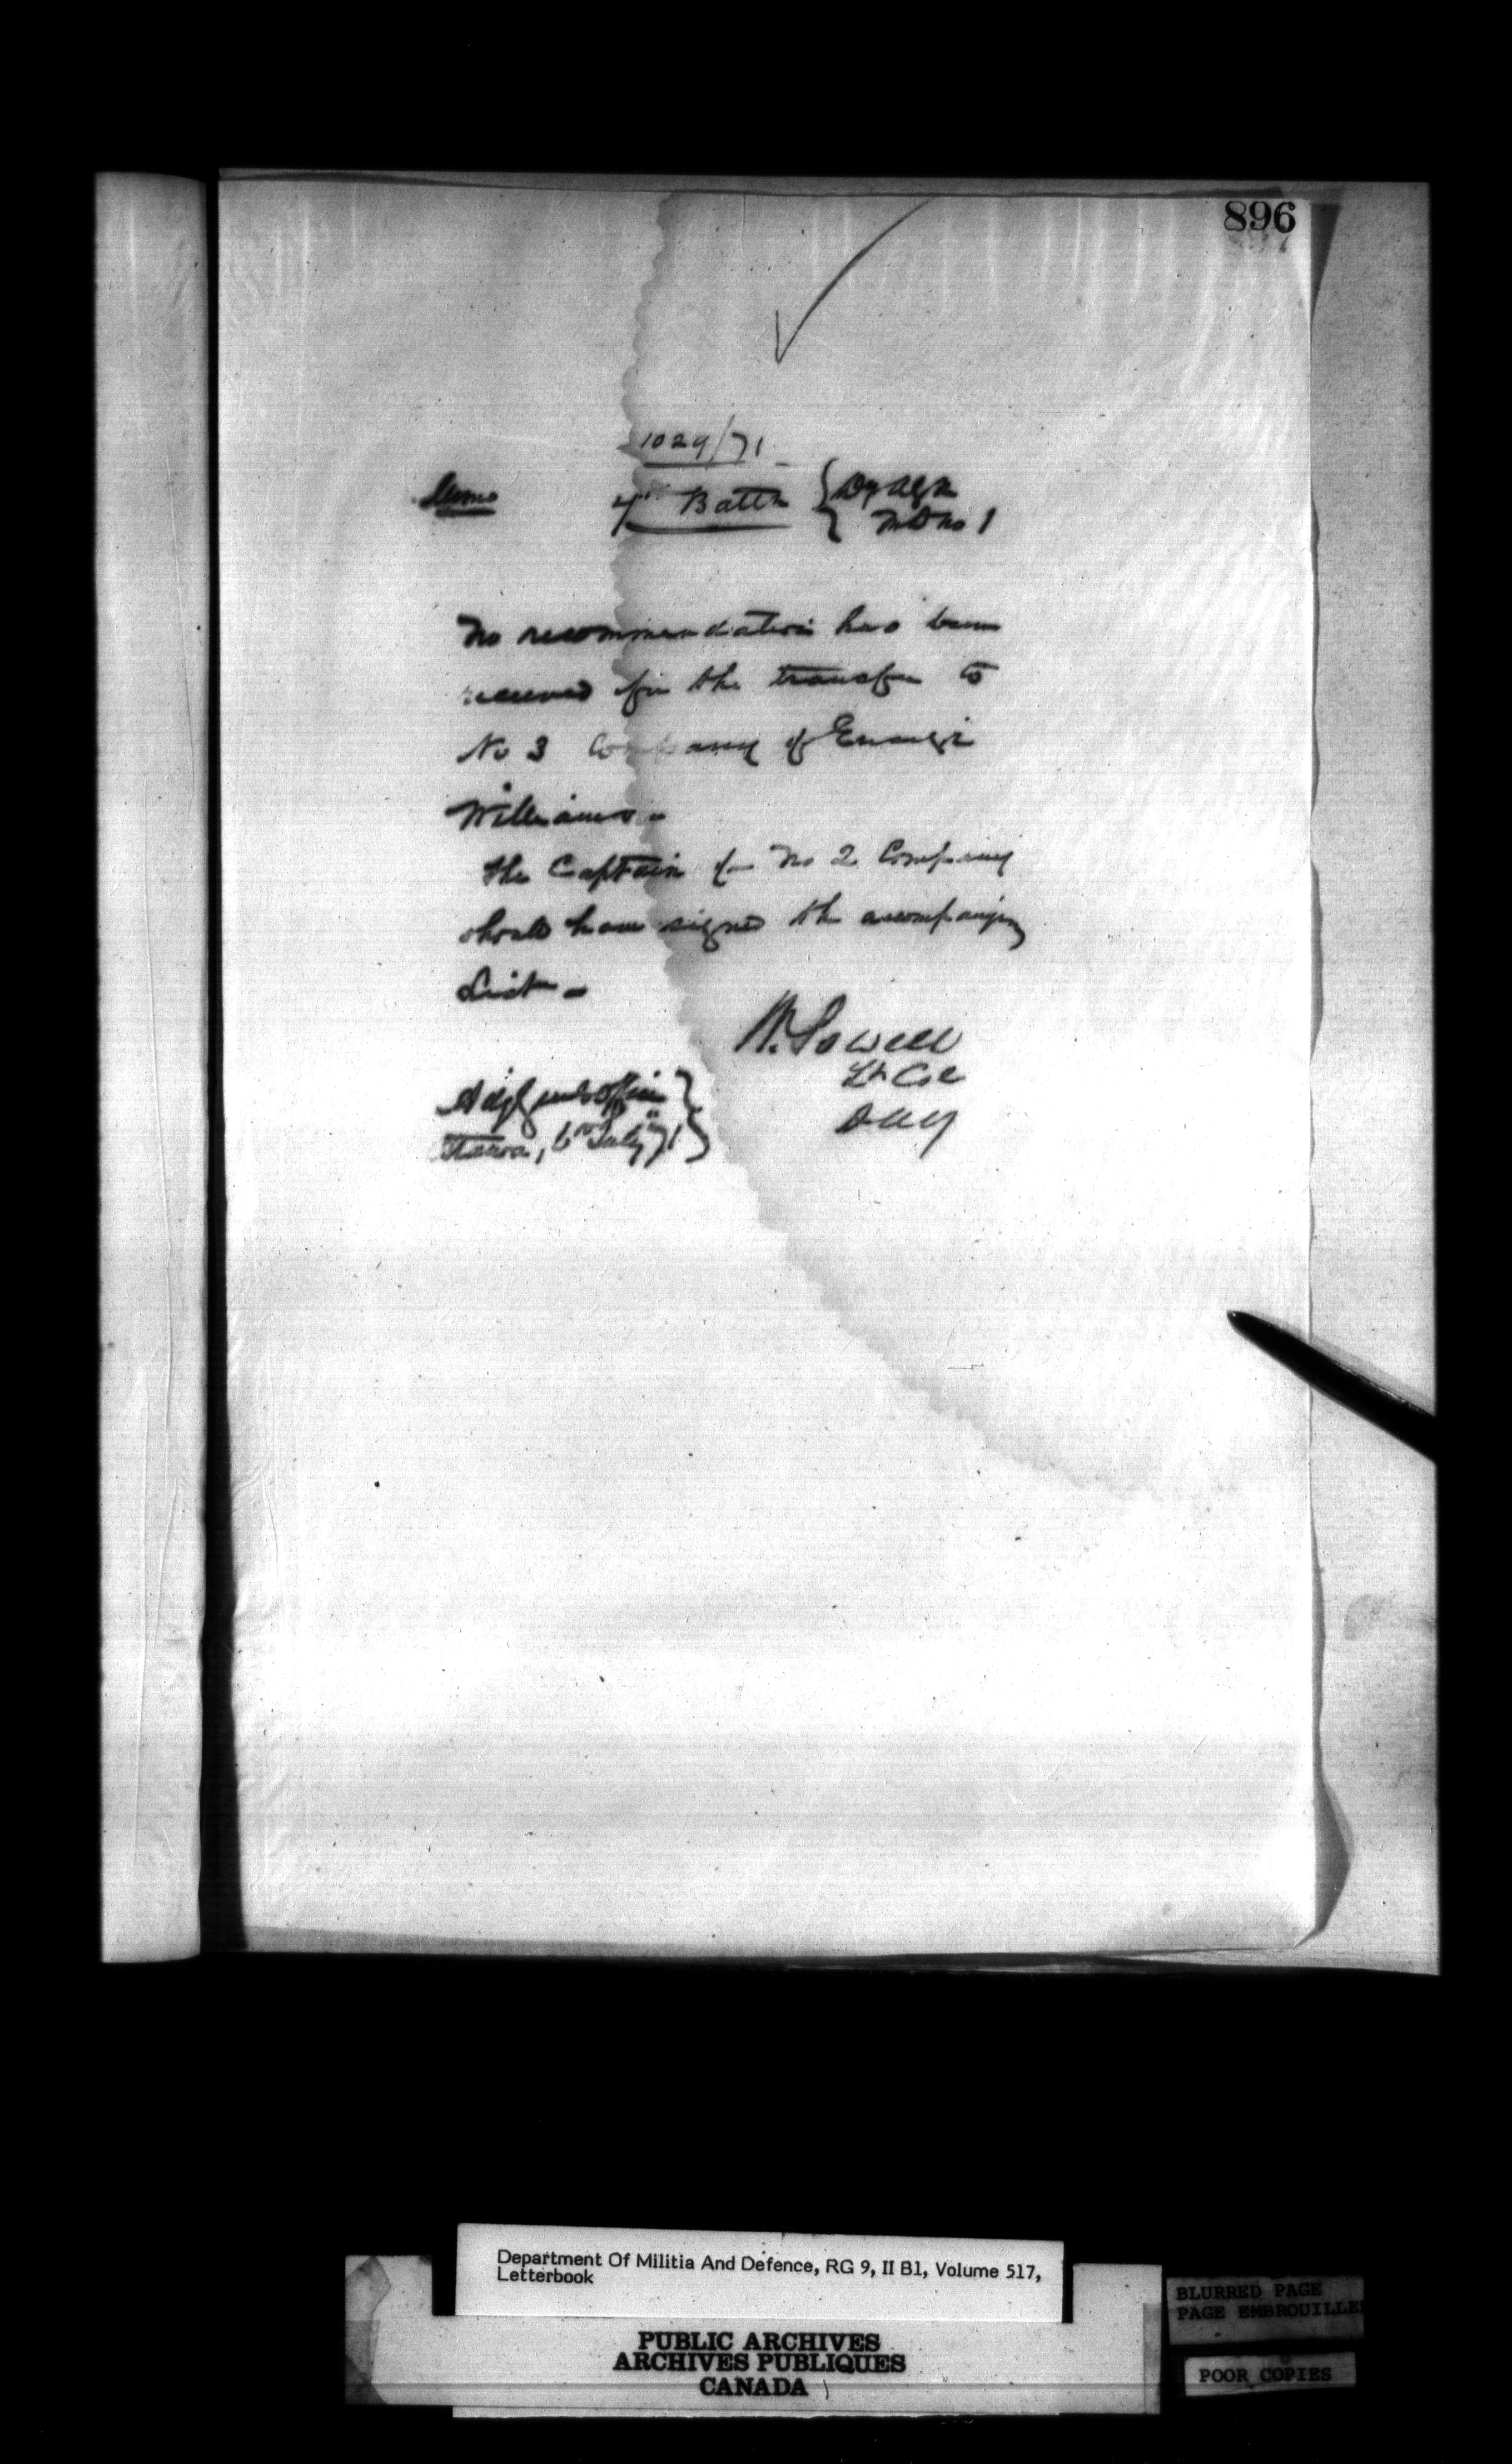 896
1029/71
Memo
7th Battn { Dy Ag
M D No 1
No recommendation has been
received for the transfer to
No 3 Company of Ensign
Williams -
The Captain of No 2 Company
should have signed the accompanying
List -
W. Powell
Lt Col
DAG
Adjt Genls Office
Ottawa, 6th July 71
Department Of Militia And Defence, RG 9, II B1, Volume 517,
Letterbook
PUBLIC ARCHIVES
ARCHIVES PUBLIQUES
CANADA
BLURRED PAGE
PAGE EMBROUILLE
POOR COPIES